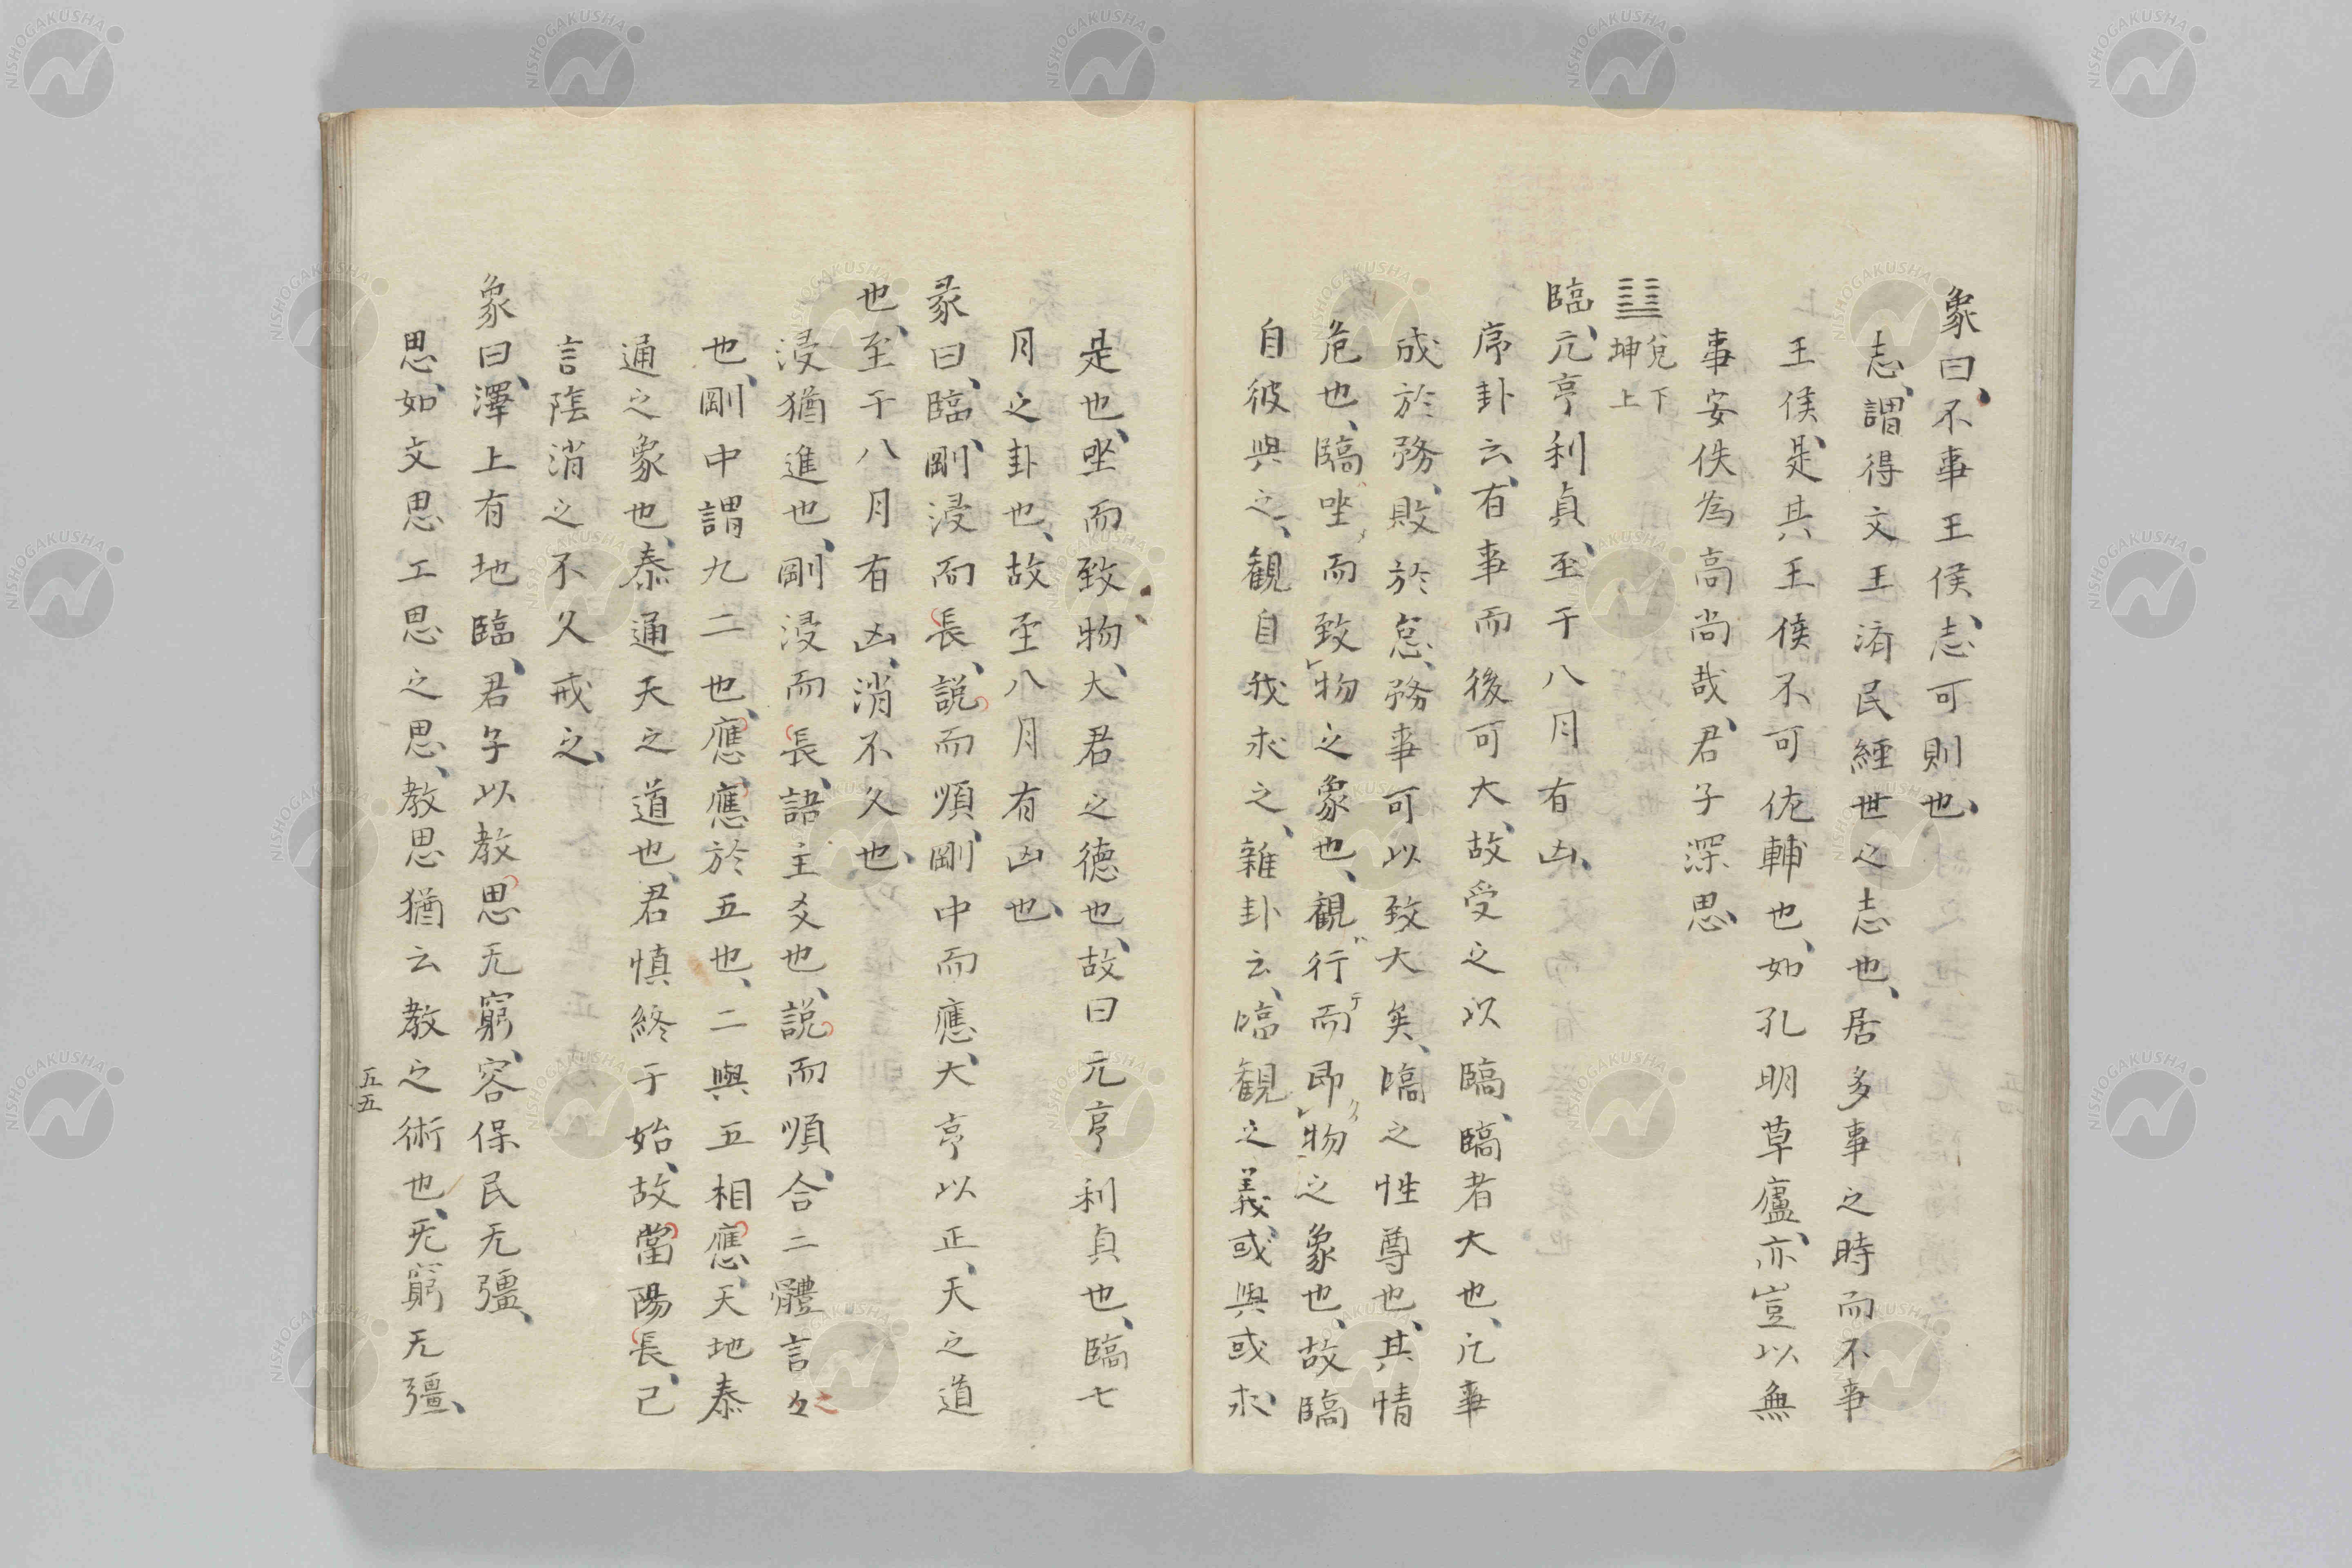 象曰、不事王侯、志可則也、
志、謂得文王済民經世之志也、居多事之時而不事
王侯、是其王侯不可佐輔也、如孔明草廬、亦豈以無
事安佚為高尚哉、君子深思、
䷒ 兌下坤上
臨、元亨利貞、至于八月有凶、
序卦云、有事而後可大、故受之以臨、臨者大也、凡事
成於務、敗於怠、務事可以致大矣、臨之性尊也、其情
危也、臨坐而致物之象也、観行而即物之象也、故臨
自彼與之、観自我求之、雜卦云、臨観之義、或與或求、
是也、坐而致物、大君之德也、故曰元亨利貞也、臨七
月之卦也、故至八月有凶也、
彖曰、臨、剛浸而長、説而順、剛中而應、大亨以正、天之道
也、至于八月有凶、消不久也、
浸猶進也、剛浸而長、語主爻也、説而順、合二體言之
也、剛中謂九二也、應、應於五也、二與五相應、天地泰
通之象也、泰通天之道也、君慎終于始、故當陽長、已
言陰消之不久戒之、
象曰、澤上有地臨、君子以教思无窮、容保民无彊、
思、如文思工思之思、教思猶云教之術也、无窮无彊、
五五
NISHOGAKUSHA